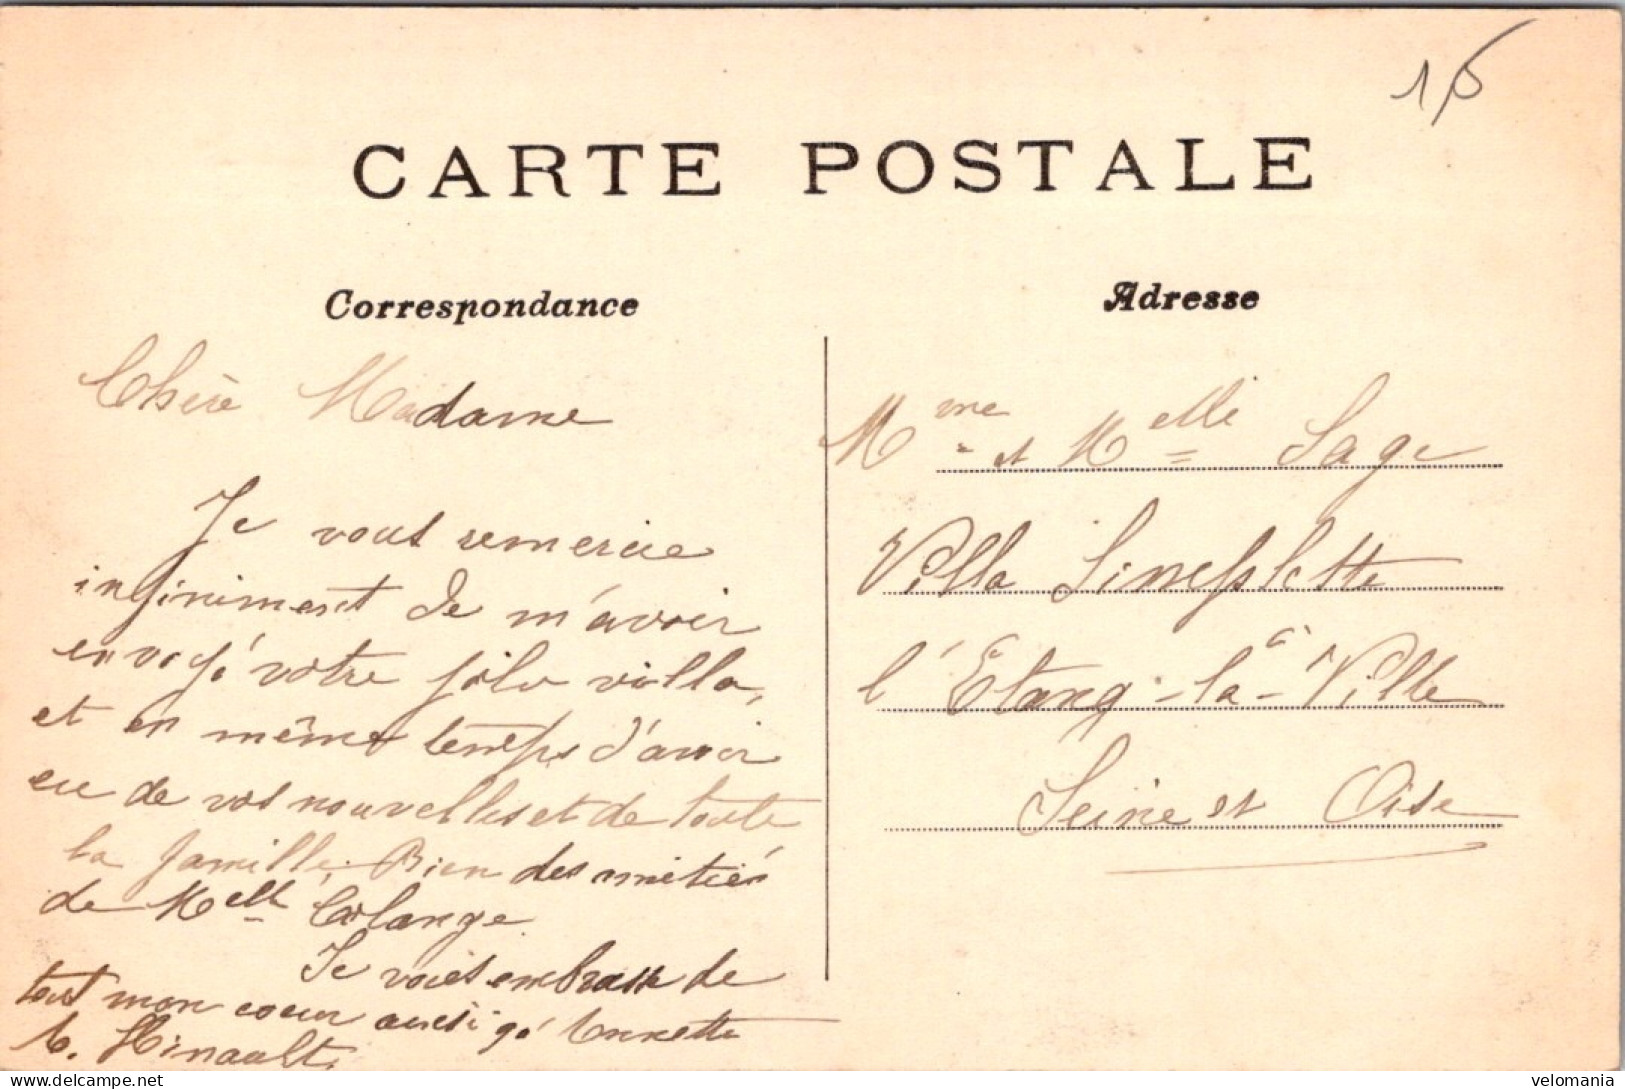 15
CARTE POSTALE
Correspondance
Chère Madame
Je vous remercie
infiniment de m'avoir
envoyé votre jolie villa,
et en même temps d'avoir
eu de vos nouvelles et de toute
la famille. Bien des amitiés
de Melle Colange
Je vous embrasse de
tout mon coeur ainsi qu'Annette
Hinault
Adresse
Mme et Melle Sage
Villa
l'Etang-la-Ville
Seine et Oise
velomania
delcampe.net